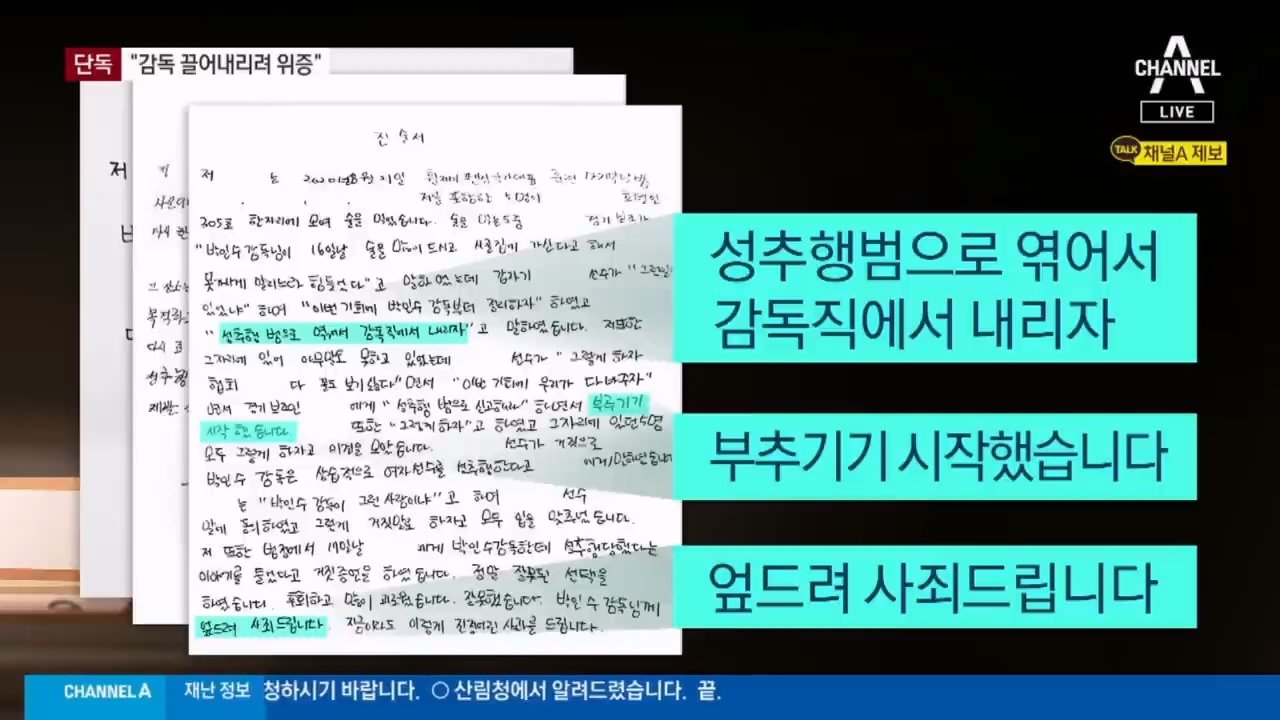 단독 "감독 끌어내리려 위증"
CHANNEL A
LIVE
TALK 채널A 제보
진술서
저 는 2020년 8월 21일
저를 포함한 5명이
305호 한자리에 모여 술을 먹었습니다.
"박인수 감독님이 16일날 술을 많이 드시고 시골집에 가신다고 해서
못가게 말리느라 힘들었다"고 말하였는데 갑자기 선수가 "그런일이
있었냐" 하며 "이번 기회에 박인수 감독부터 정리하자" 하였고
"성추행 범으로 엮어서 감독직에서 내리자"고 말하였습니다. 저또한
그자리에 있어 아무말도 못하고 있었는데 선수가 "그렇게 하자
협회 다 꼴도 보기싫다"면서 "이번 기회에 우리가 다 바꾸자"
면서 경기보조인 에게 "성추행 범으로 신고해라" 하면서 부추기기
시작 했습니다. 또한 "그렇게 하자"고 하였고 그자리에 있던 5명
모두 그렇게 하자고 의견을 모았습니다. 선수가 거짓으로
박인수 감독은 상습적으로 여자선수를 성추행한다고 에게 말하였습니다
는 "박인수 감독이 그런 사람이냐"고 하며 선수
말에 동의하였고 그렇게 거짓말로 하자고 모두 입을 맞추었습니다.
저 또한 법정에서 17일날 에게 박인수감독한테 성추행당했다는
이야기를 들었다고 거짓증언을 하였습니다. 정말 잘못된 선택을
하였습니다. 후회하고 많이 괴로웠습니다. 잘못했습니다. 박인수 감독님께
엎드려 사죄드립니다. 지금이라도 이렇게 진정어린 사과를 드립니다.
성추행범으로 엮어서
감독직에서 내리자
부추기기 시작했습니다
엎드려 사죄드립니다
CHANNEL A 재난 정보 청하시기 바랍니다. ○ 산림청에서 알려드렸습니다. 끝.